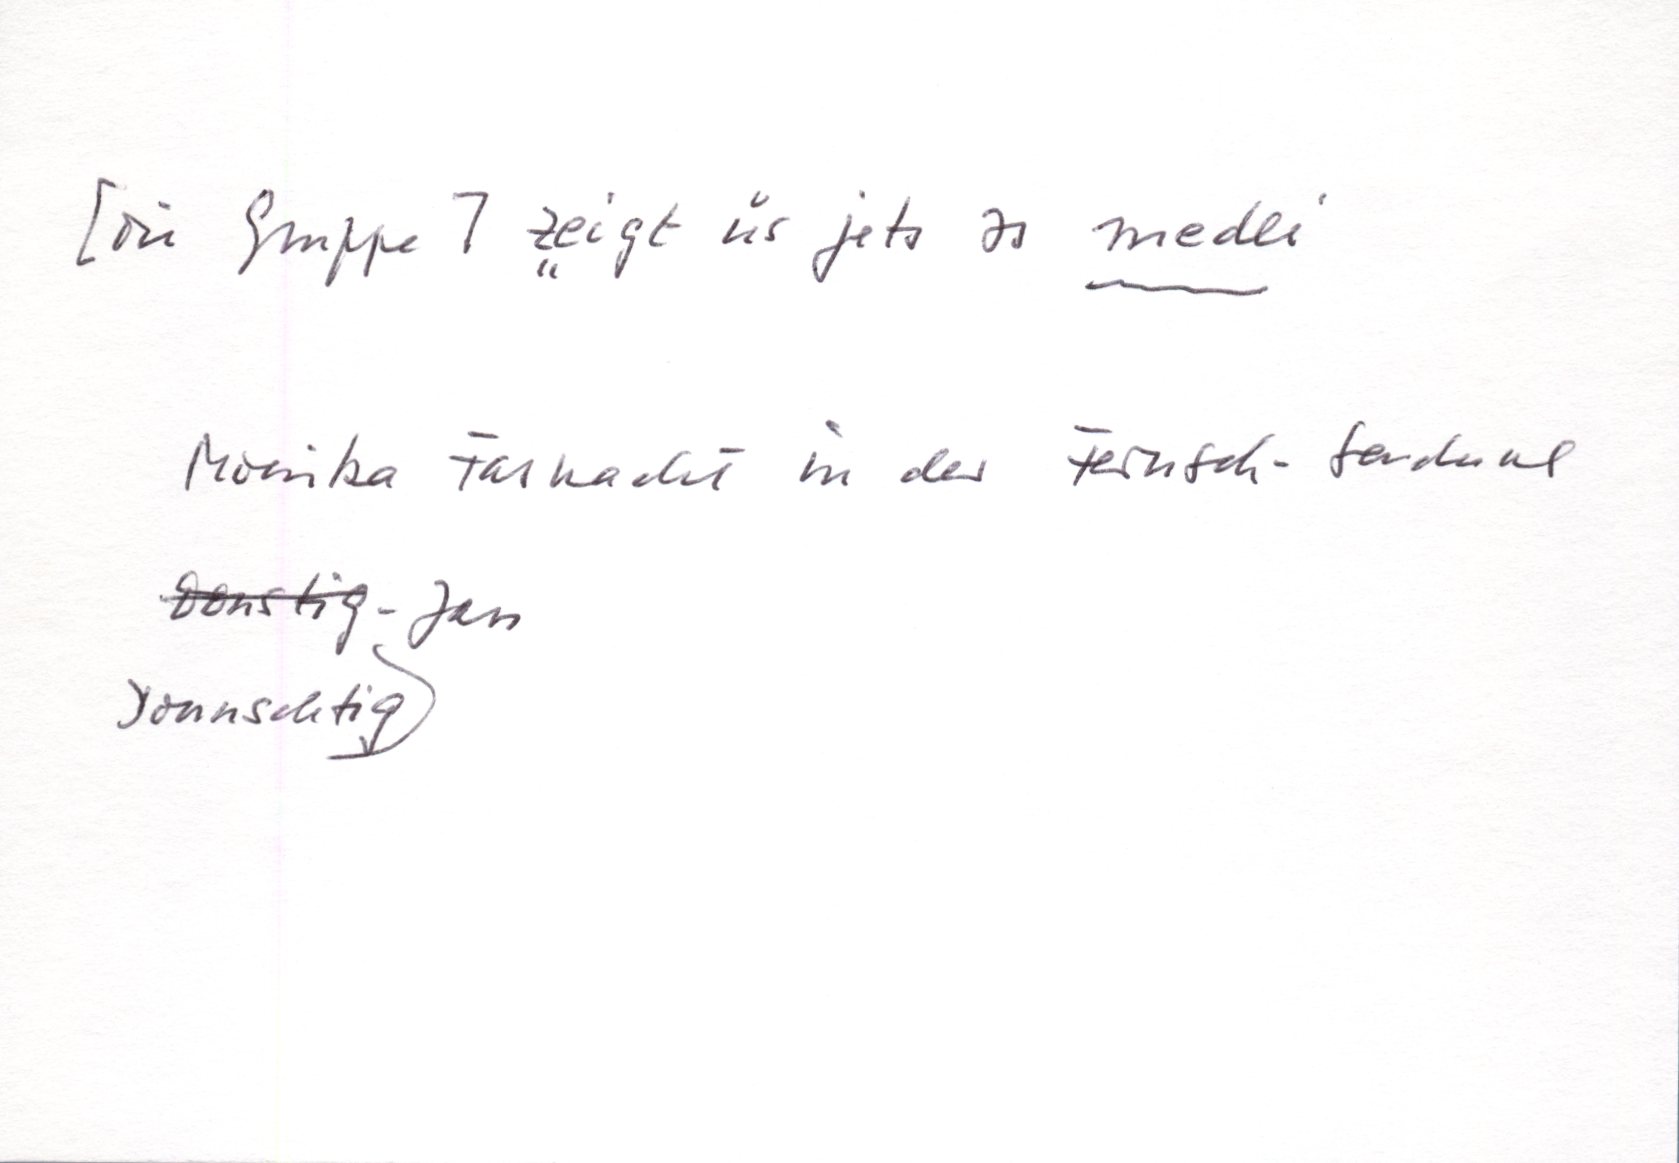 [die Gruppe] zeigt üs jets əs medli
Monika Fasnacht in der Fernseh-Sendung
Donstig-Jass
Donnschtig